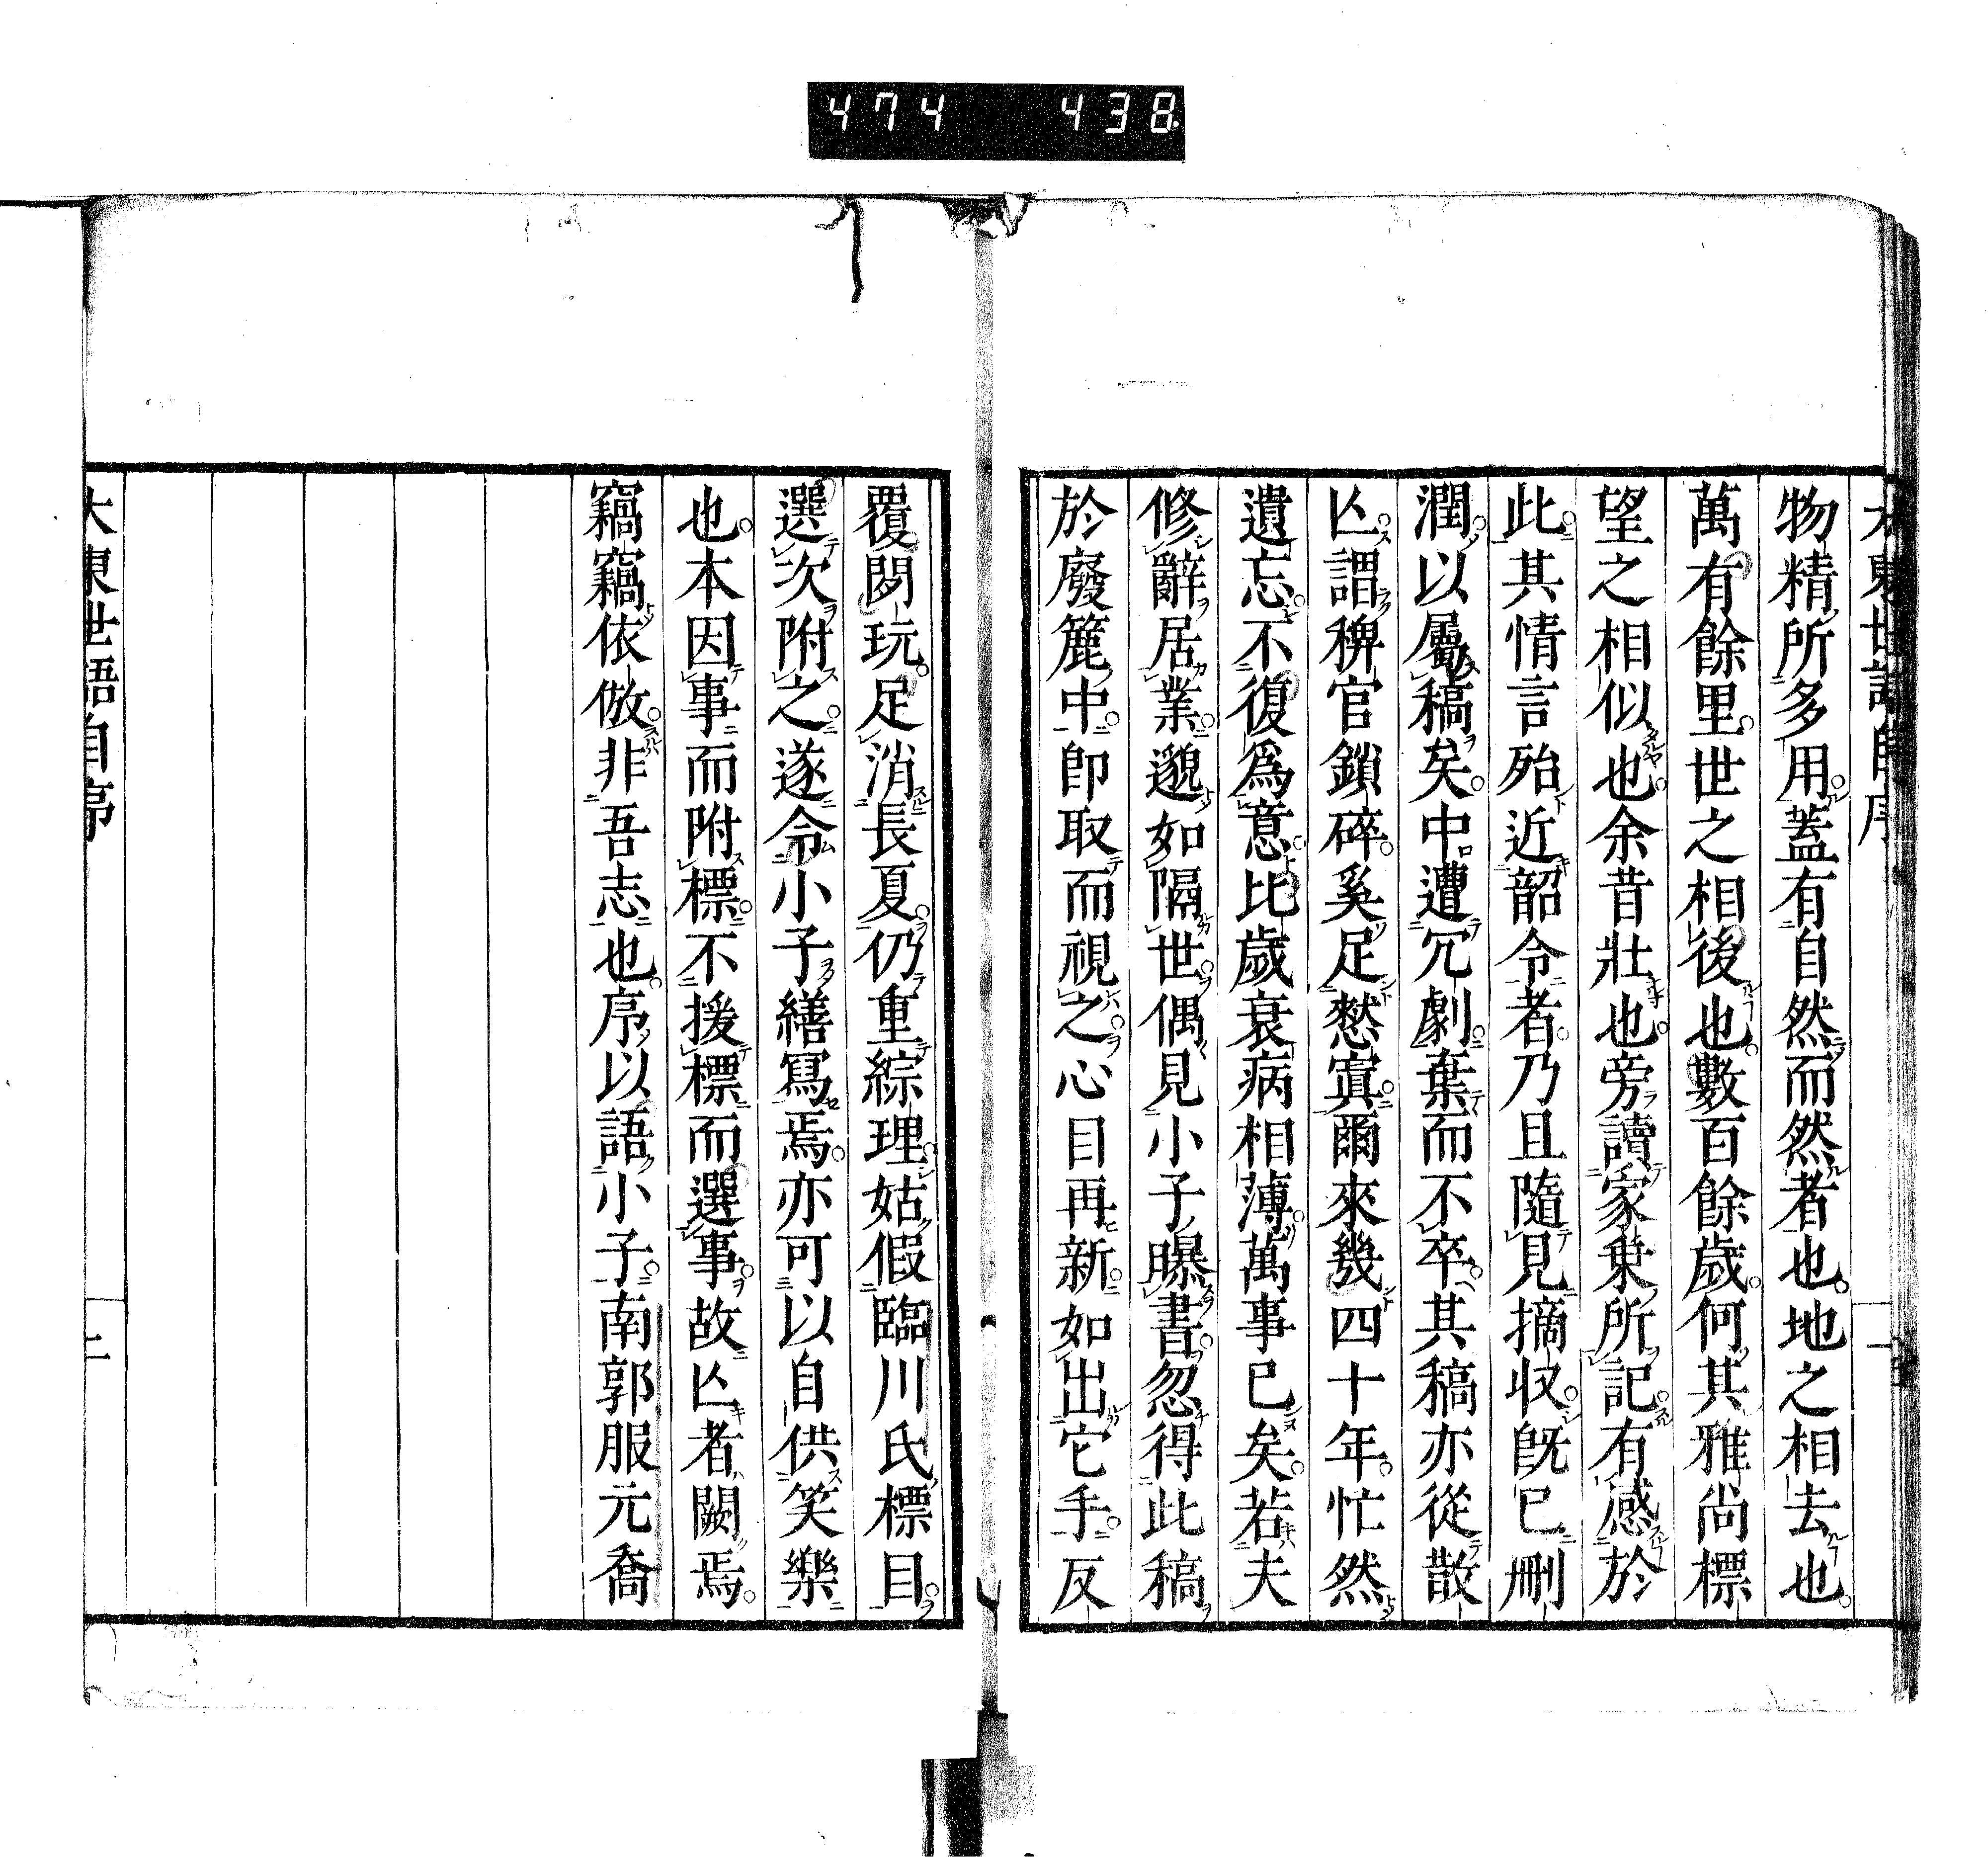 474 438
物精所多用蓋有自然而然者也地之相去也
萬有餘里世之相後也數百餘歲何其雅尚標
望之相似也余昔壯也旁讀家乗所記有感於
此其情言殆近韶令者乃且隨見摘収既已刪
潤以屬稿矣中遭冗劇棄而不卒其稿亦從散
亾謂稗官鎖碎奚足憗寘爾來幾四十年忙然
遺忘不復爲意比歲衰病相薄萬事已矣若夫
修辭居業邈如隔世偶見小子曝書忽得此稿
於廢簏中即取而視之心目再新如出它手反
覆閲玩足消長夏仍重綜理姑假臨川氏標目
選次附之遂令小子繕寫焉亦可以自供笑樂
也本因事而附標不援標而選事故亾者闕焉
竊竊依倣非吾志也序以語小子南郭服元喬
大東世語自序
二